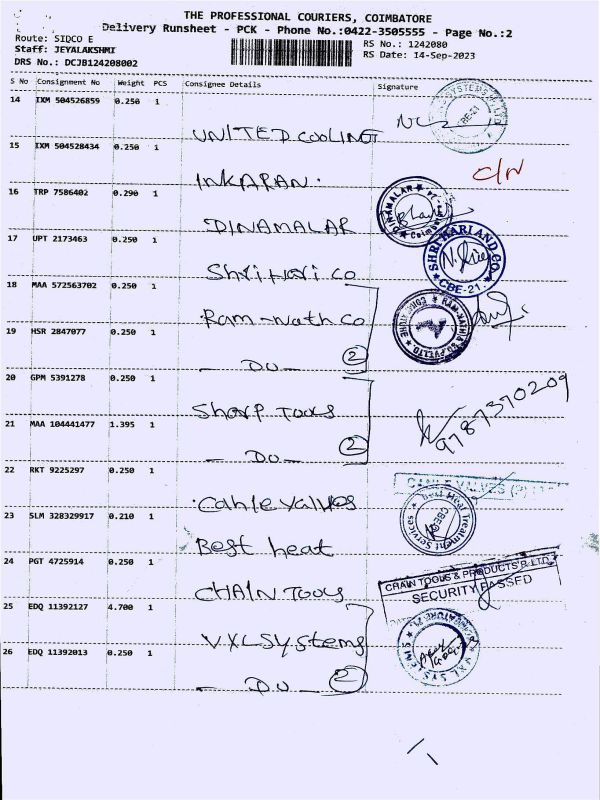 THE PROFESSIONAL COURIERS, COIMBATORE
Delivery Runsheet - PCK - Phone No.:0422-3505555 - Page No.:2
Route: SIDCO E
RS No.: 1242080
Staff: JEYALAKSHMI
RS Date: 14-Sep-2023
DRS No.: DCJB124208002
S No Consignment No Weight PCS Consignee Details Signature
14 IXM 504526859 0.250 1
UNITED COOLING
15 IXM 504528434 0.250 1
INKARAN.
C/N
16 TRP 7586402 0.290 1
DINAMALAR
DINAMALAR
17 UPT 2173463 0.250 1
Shri Hari co
SHRI HARI AND CO.
CBE-21.
18 MAA 572563702 0.250 1
Ram-nath co
19 HSR 2847077 0.250 1
- Do - 2
20 GPM 5391278 0.250 1
Sharp Tools
9787370209
21 MAA 104441477 1.395 1
- Do - 2
22 RKT 9225297 0.250 1
Cable valves
23 SLM 328329917 0.210 1
Best heat
Best Heat Treatment Services
24 PGT 4725914 0.250 1
CHAIN TOOLS
CHAIN TOOLS & PRODUCTS P. LTD.
SECURITY PASSED
25 EDQ 11392127 4.700 1
VXL Systems
26 EDQ 11392013 0.250 1
- Do - 2
VXL SYSTEMS